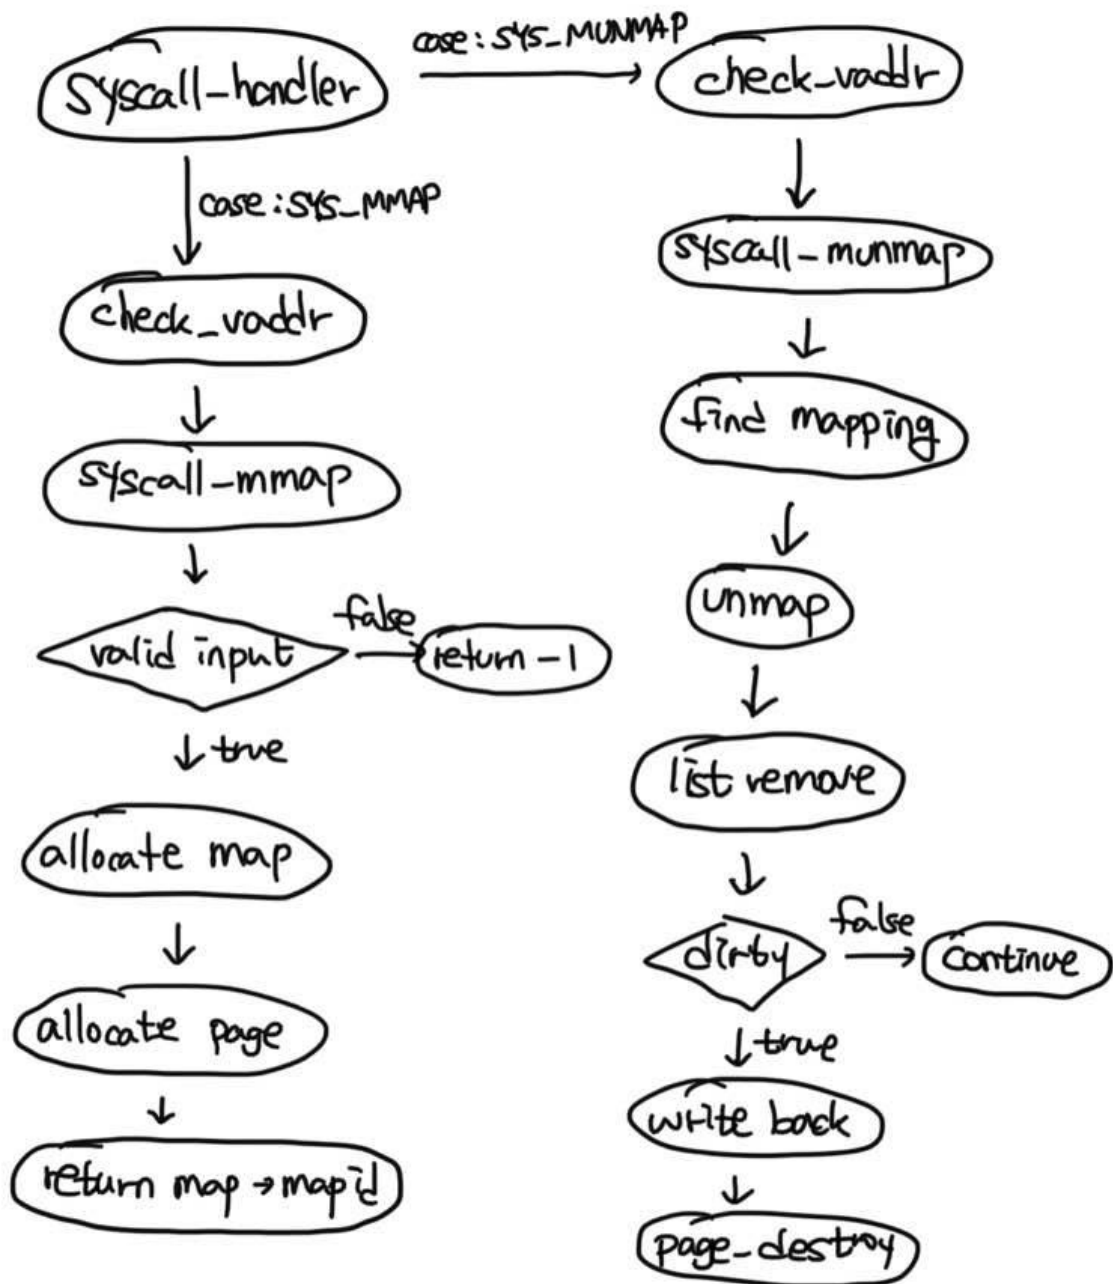 syscall-handler
case: SYS_MUNMAP
check_vaddr
case: SYS_MMAP
check_vaddr
syscall-mmap
valid input
false
return -1
true
allocate map
allocate page
return map → mapid
syscall-munmap
find mapping
unmap
list remove
dirty
false
continue
true
write back
page_destroy